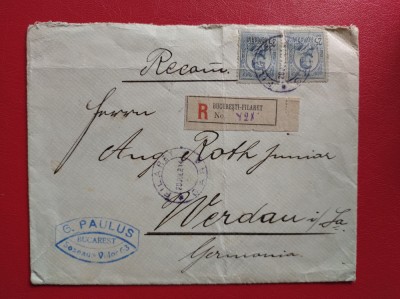 Recom.
R
BUCUREȘTI-FILARET
No. 428
Herrn
Aug. Roth junior
Werdau i/Sa.
Germania
G. PAULUS
BUCAREST